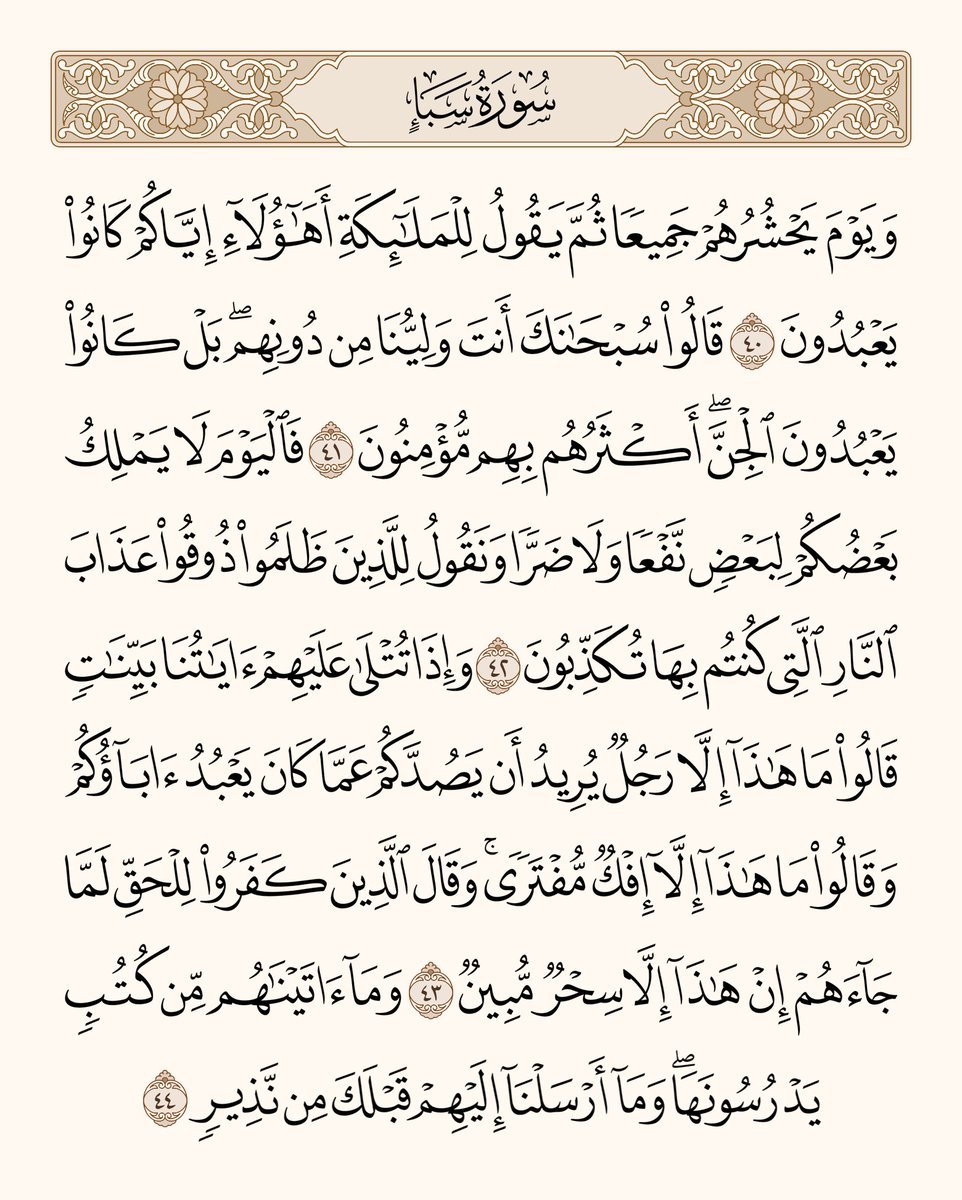 سُورَةُ سَبَإٍ
وَيَوْمَ يَحْشُرُهُمْ جَمِيعًا ثُمَّ يَقُولُ لِلْمَلَـٰٓئِكَةِ أَهَـٰٓؤُلَآءِ إِيَّاكُمْ كَانُوا۟
يَعْبُدُونَ ٤٠ قَالُوا۟ سُبْحَـٰنَكَ أَنتَ وَلِيُّنَا مِن دُونِهِم ۖ بَلْ كَانُوا۟
يَعْبُدُونَ ٱلْجِنَّ ۖ أَكْثَرُهُم بِهِم مُّؤْمِنُونَ ٤١ فَٱلْيَوْمَ لَا يَمْلِكُ
بَعْضُكُمْ لِبَعْضٍ نَّفْعًا وَلَا ضَرًّا وَنَقُولُ لِلَّذِينَ ظَلَمُوا۟ ذُوقُوا۟ عَذَابَ
ٱلنَّارِ ٱلَّتِى كُنتُم بِهَا تُكَذِّبُونَ ٤٢ وَإِذَا تُتْلَىٰ عَلَيْهِمْ ءَايَـٰتُنَا بَيِّنَـٰتٍ
قَالُوا۟ مَا هَـٰذَآ إِلَّا رَجُلٌ يُرِيدُ أَن يَصُدَّكُمْ عَمَّا كَانَ يَعْبُدُ ءَابَآؤُكُمْ
وَقَالُوا۟ مَا هَـٰذَآ إِلَّآ إِفْكٌ مُّفْتَرًى ۚ وَقَالَ ٱلَّذِينَ كَفَرُوا۟ لِلْحَقِّ لَمَّا
جَآءَهُمْ إِنْ هَـٰذَآ إِلَّا سِحْرٌ مُّبِينٌ ٤٣ وَمَآ ءَاتَيْنَـٰهُم مِّن كُتُبٍ
يَدْرُسُونَهَا ۖ وَمَآ أَرْسَلْنَآ إِلَيْهِمْ قَبْلَكَ مِن نَّذِيرٍ ٤٤